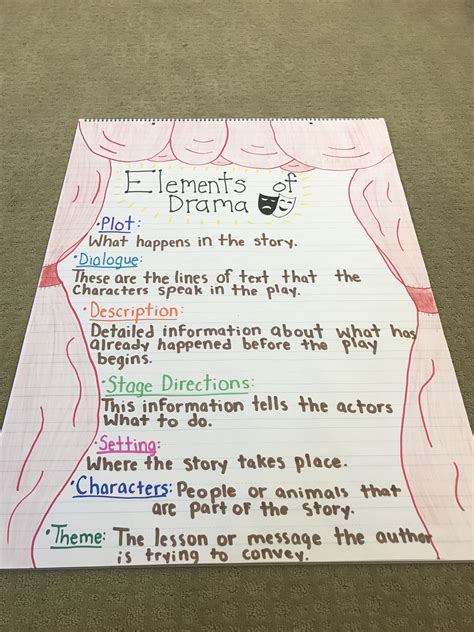 Elements of
Drama
•Plot:
What happens in the story.
•Dialogue:
These are the lines of text that the
Characters speak in the play.
•Description:
Detailed information about what has
already happened before the play
begins.
•Stage Directions:
This information tells the actors
What to do.
•Setting:
Where the story takes place.
•Characters: People or animals that
are part of the story.
•Theme: The lesson or message the author
is trying to convey.